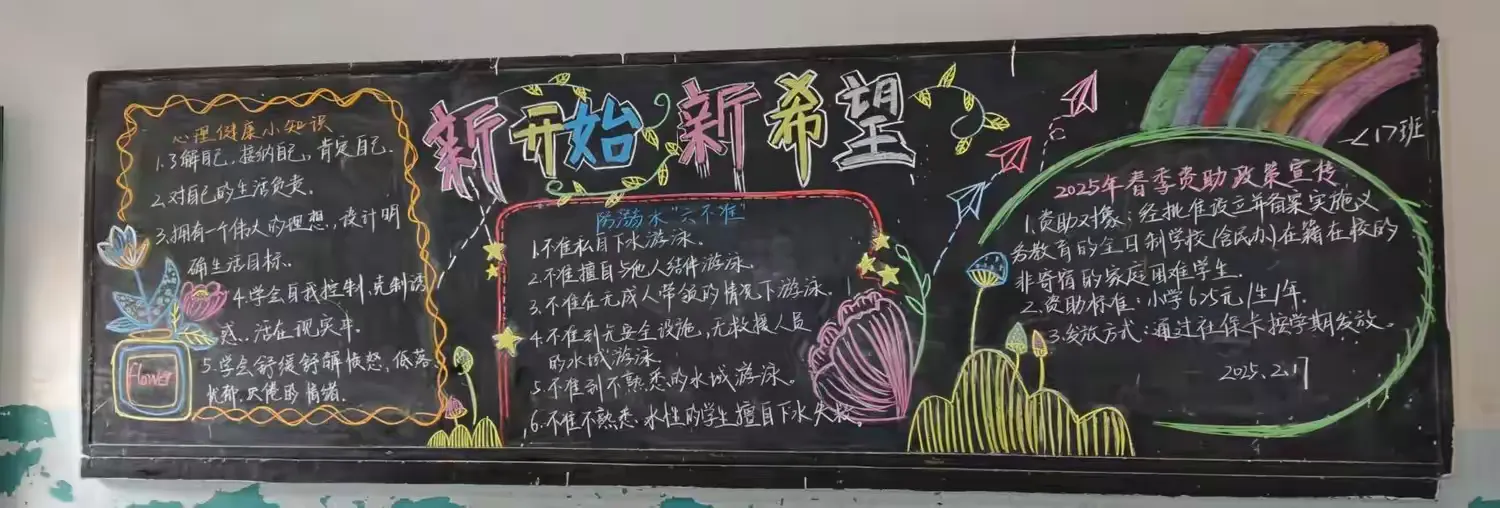 新开始 新希望
心理健康小知识
1.了解自己，接纳自己，肯定自己.
2.对自己的生活负责。
3.拥有一个伟人的理想，设计明
确生活目标。
4.学会自我控制，克制诱
惑，活在现实中。
5.学会舒缓舒解愤怒，低落
忧郁，厌倦的情绪.
Flower
防溺水“六不准”
1.不准私自下水游泳。
2.不准擅自与他人结伴游泳。
3.不准在无成人带领的情况下游泳。
4.不准到无安全设施，无救援人员
的水域游泳
5.不准到不熟悉的水域游泳。
6.不准不熟悉水性的学生擅自下水失救。
一〈17班
2025年春季资助政策宣传
1.资助对象：经批准设立并备案实施义
务教育的全日制学校(含民办)在籍在校的
非寄宿的家庭困难学生.
2.资助标准：小学625元/生/年.
3.发放方式：通过社保卡按学期发放。
2025.2.17